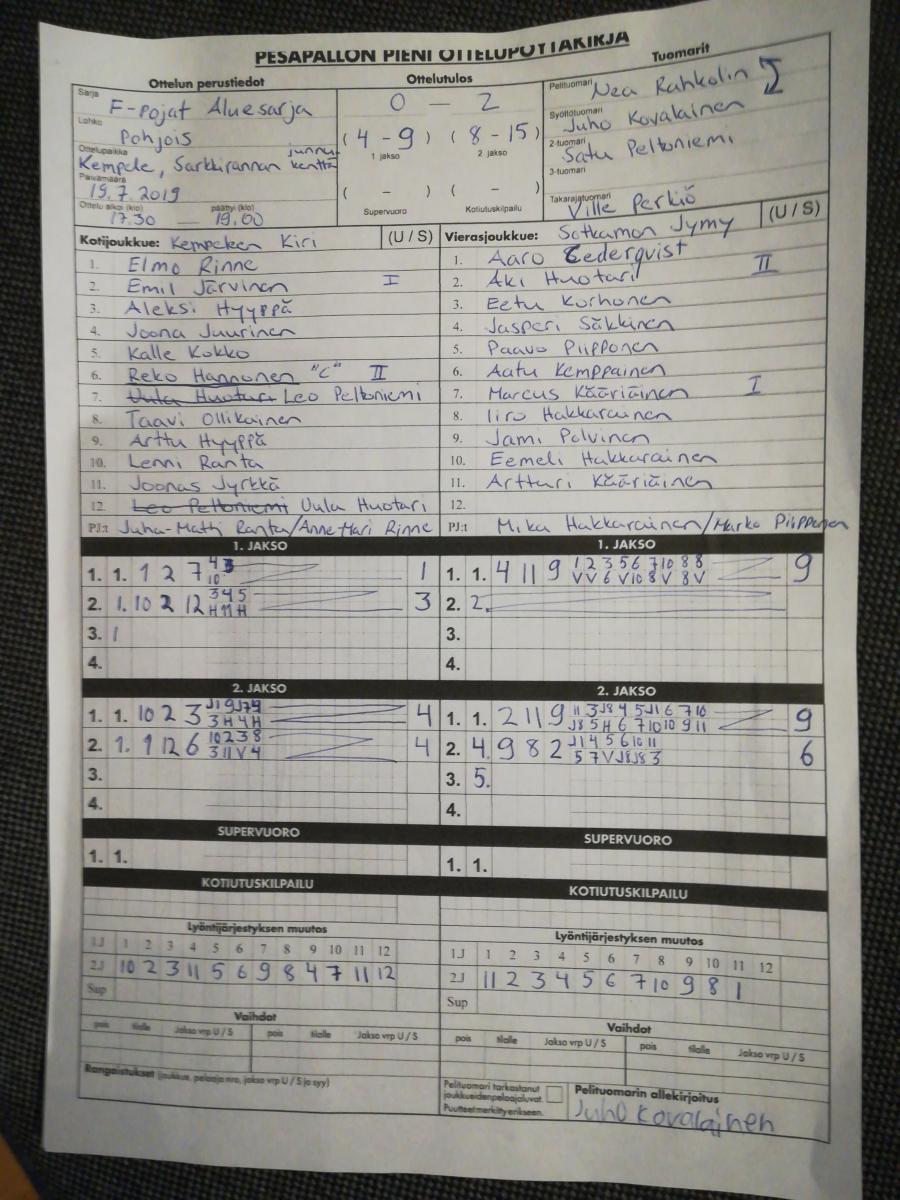 PESÄPALLON PIENI OTTELUPÖYTÄKIRJA
Ottelun perustiedot
Sarja F-pojat Aluesarja
Lohko Pohjois
Ottelupaikka Kempele, Sarkkirannan junnu-kenttä
Päivämäärä 19.7.2019
Ottelu alkoi (klo) 17.30 — päättyi (klo) 19.00
Ottelutulos
0 — 2
(4 - 9) (8 - 15)
1. jakso 2. jakso
( - ) ( - )
Supervuoro Kotiutuskilpailu
Tuomarit
Pelituomari Nea Rahkolin
Syöttötuomari Juho Kovalainen
2-tuomari Satu Peltoniemi
3-tuomari
Takarajatuomari Ville Perkiö
Kotijoukkue: Kempeleen Kiri (U / S)
1. Elmo Rinne
2. Emil Järvinen I
3. Aleksi Hyyppä
4. Joona Juurinen
5. Kalle Kokko
6. Reko Hannonen "C" II
7. Uula Huotari Leo Peltoniemi
8. Taavi Ollikainen
9. Arttu Hyyppä
10. Lenni Ranta
11. Joonas Jyrkkä
12. Leo Peltoniemi Uula Huotari
PJ:t Juha-Matti Ranta/AnneMari Rinne
Vierasjoukkue: Sotkamon Jymy (U / S)
1. Aaro Cederqvist
2. Aki Huotari II
3. Eetu Korhonen
4. Jasperi Säkkinen
5. Paavo Piipponen
6. Aatu Kemppainen
7. Marcus Kääriäinen I
8. Iiro Hakkarainen
9. Jami Polvinen
10. Eemeli Hakkarainen
11. Artturi Kääriäinen
12.
PJ:t Mika Hakkarainen/Marko Piipponen
1. JAKSO
1. 1. 1 2 7 1
2. 1. 10 2 12 3 4 5 3
H 11 H
3. 1
4.
1. JAKSO
1. 1. 4 11 9 1 2 3 5 6 7 10 8 8 9
V V 6 V 10 8 V 8 V
2. 2.
3.
4.
2. JAKSO
1. 1. 10 2 3 J1 9 J7 9 4
3 H 4 H
2. 1. 9 12 6 10 2 3 8 4
3 11 V 4
3.
4.
2. JAKSO
1. 1. 2 11 9 11 3 J8 4 5 J1 6 7 10 9
J8 5 H 6 7 10 10 9 11
2. 4. 9 8 2 J1 4 5 6 10 11 6
5 7 V J8 J8 3
3. 5.
4.
SUPERVUORO
1. 1.
SUPERVUORO
1. 1.
KOTIUTUSKILPAILU
KOTIUTUSKILPAILU
Lyöntijärjestyksen muutos
1J 1 2 3 4 5 6 7 8 9 10 11 12
2J 10 2 3 11 5 6 9 8 4 7 11 12
Sup
Lyöntijärjestyksen muutos
1J 1 2 3 4 5 6 7 8 9 10 11 12
2J 11 2 3 4 5 6 7 10 9 8 1
Sup
Vaihdot
pois tilalle Jakso vrp U / S pois tilalle Jakso vrp U / S
Vaihdot
pois tilalle Jakso vrp U / S pois tilalle Jakso vrp U / S
Rangaistukset (joukkue, pelaaja nro, jakso vrp U / S ja syy)
Pelituomari tarkastanut
joukkueidenpelaajaluvat.
Puutteetmerkittyerikseen.
Pelituomarin allekirjoitus
Juho Kovalainen